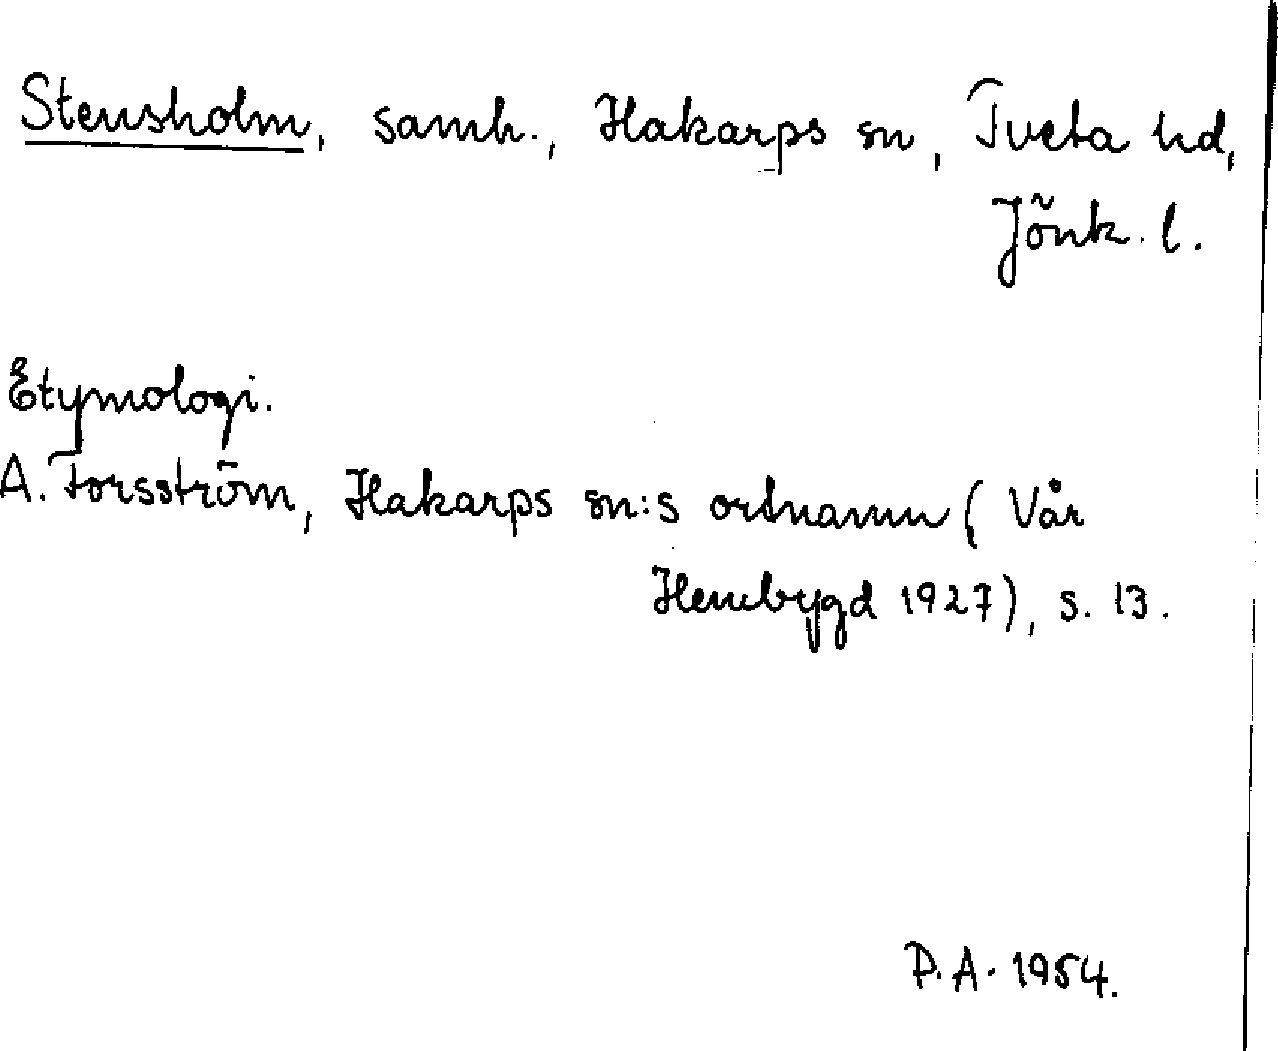 Stensholm, samh., Hakarps sn, Tveta hd,
Jönk. l.
Etymologi.
A. Forsström, Hakarps sn:s ortnamn (Vår
Hembygd 1927), s. 13.
P.A. 1954.